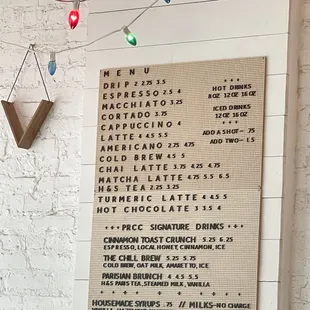 MENU
DRIP 2 2.75 3.5
ESPRESSO 2.5 4
MACCHIATO 3.25
CORTADO 3.75
CAPPUCCINO 4
LATTE 4 4.5 5.5
AMERICANO 2.75 4.75
COLD BREW 4.5 5
CHAI LATTE 3.75 4.25 4.75
MATCHA LATTE 4.75 5.5 6.5
H&S TEA 2.25 3.25
TURMERIC LATTE 4 4.5 5
HOT CHOCOLATE 3 3.5 4
+++
HOT DRINKS
8OZ 12OZ 16OZ
ICED DRINKS
12OZ 16OZ
+++
ADD A SHOT- .75
ADD TWO- 1.5
+++PRCC SIGNATURE DRINKS+++
CINNAMON TOAST CRUNCH 5.25 6.25
ESPRESSO, LOCAL HONEY, CINNAMON, ICE
THE CHILL BREW 5.25 5.75
COLD BREW, OAT MILK, AMARETTO, ICE
PARISIAN BRUNCH 4 4.5 5.5
H&S PARIS TEA, STEAMED MILK, VANILLA
HOUSEMADE SYRUPS .75 // MILKS-NO CHARGE